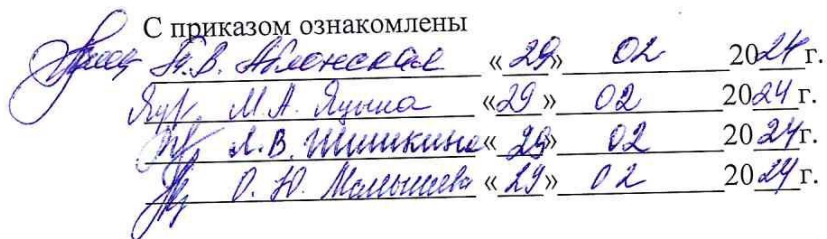 С приказом ознакомлены
В. Яблонская «29» 02 2024 г.
М.А. «29» 02 2024 г.
Л.В. Шишкина «29» 02 2024 г.
О.Ю. Малышева «29» 02 2024 г.